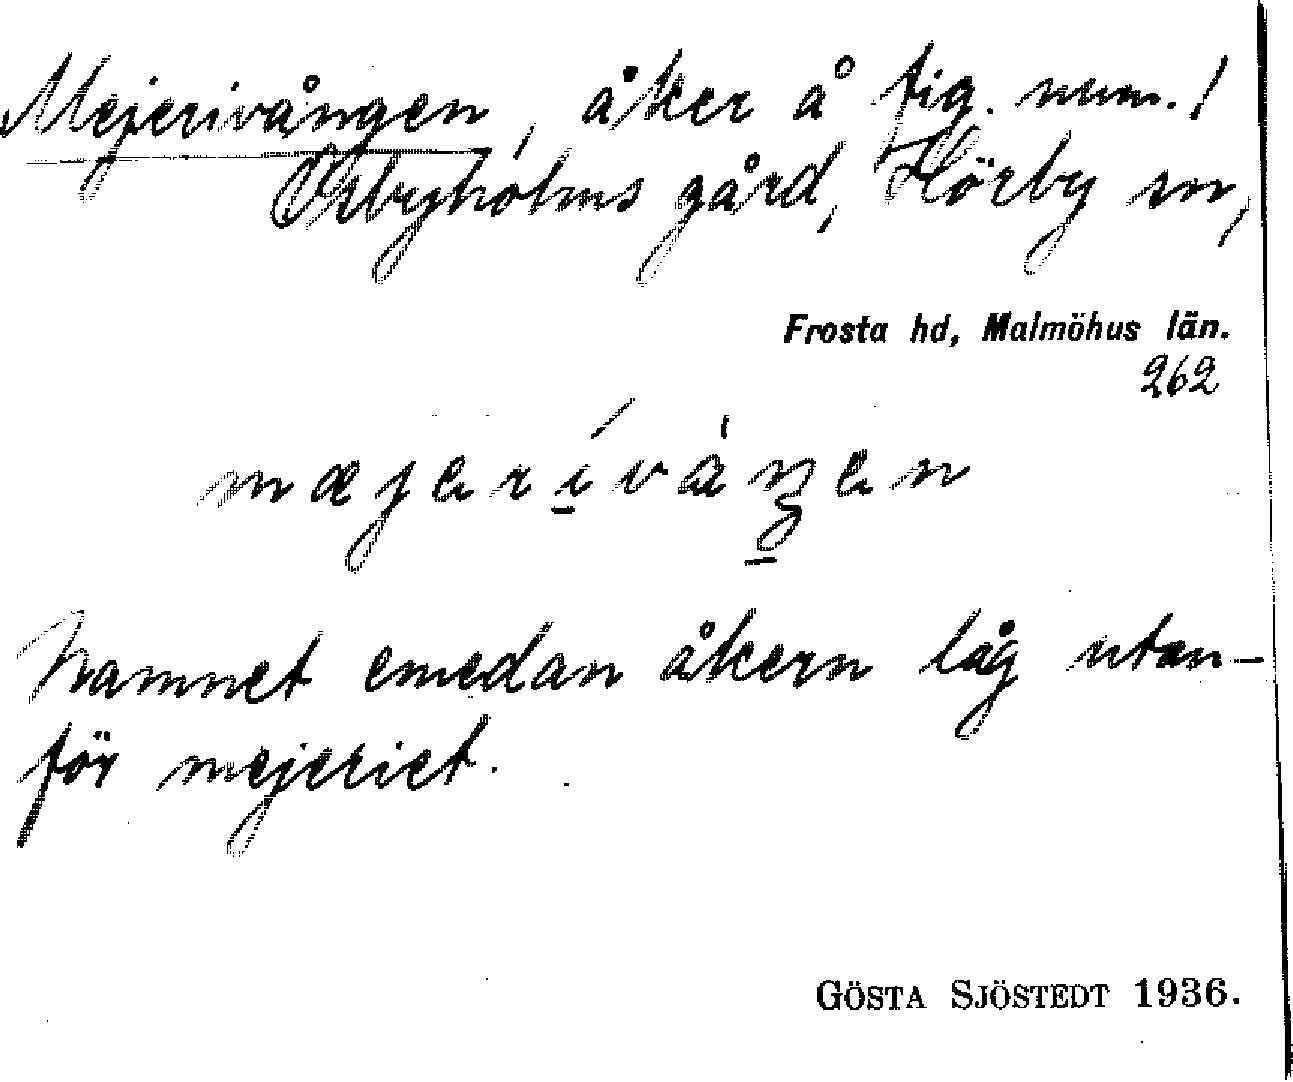 Mejerivången, åker å fig. num. 1
Osbyholms gård, Hörby sn,
Frosta hd, Malmöhus län.
262
mæjerívåŋen
Namnet emedan åkern låg utan-
för mejeriet.
GÖSTA SJÖSTEDT 1936.